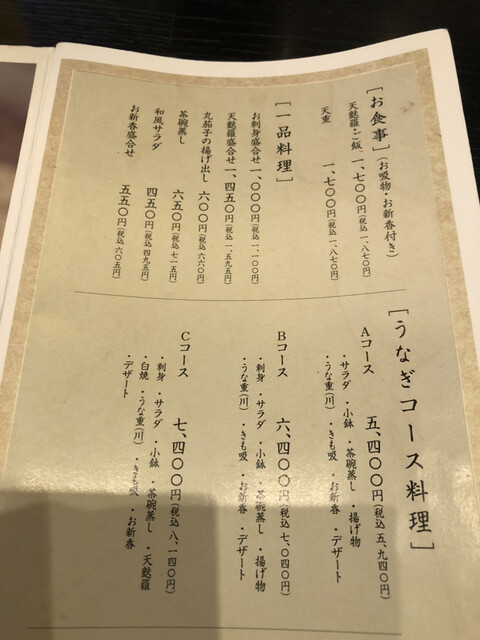 [お食事](お吸物・お新香付き)
天麩羅・ご飯 一、七〇〇円(税込 一、八七〇円)
天重 一、七〇〇円(税込 一、八七〇円)
[一品料理]
お刺身盛合せ 一、〇〇〇円(税込 一、一〇〇円)
天麩羅盛合せ 一、四五〇円(税込 一、五九五円)
丸茄子の揚げ出し 六〇〇円(税込 六六〇円)
茶碗蒸し 六五〇円(税込 七一五円)
和風サラダ 四五〇円(税込 四九五円)
お新香盛合せ 五五〇円(税込 六〇五円)
[うなぎコース料理]
Aコース 五、四〇〇円(税込 五、九四〇円)
・サラダ ・小鉢 ・茶碗蒸し ・揚げ物
・うな重(川) ・きも吸 ・お新香 ・デザート
Bコース 六、四〇〇円(税込 七、〇四〇円)
・刺身 ・サラダ ・小鉢 ・茶碗蒸し ・揚げ物
・うな重(川) ・きも吸 ・お新香 ・デザート
Cコース 七、四〇〇円(税込 八、一四〇円)
・刺身 ・サラダ ・小鉢 ・茶碗蒸し ・天麩羅
・白焼 ・うな重(川) ・きも吸 ・お新香
・デザート